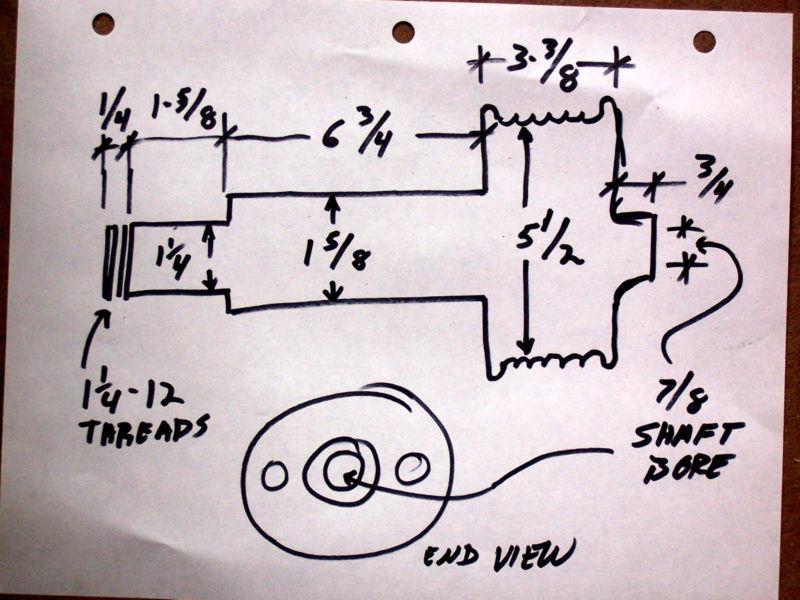 3-3/8
1/4
1-5/8
6 3/4
3/4
1 1/4
1 5/8
5 1/2
1 1/4-12
THREADS
7/8
SHAFT
BORE
END VIEW